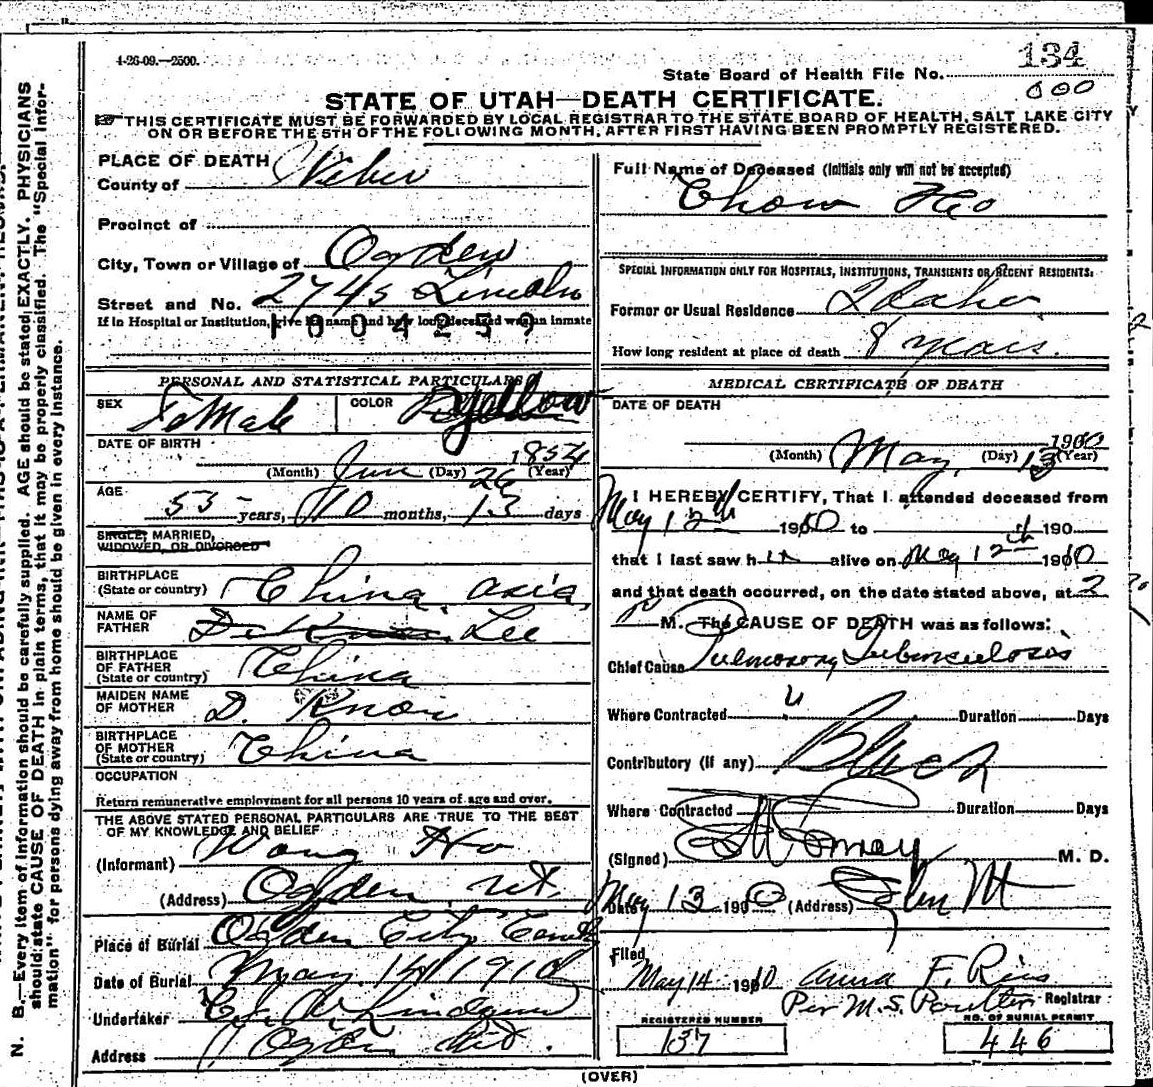 4-26-09.—2500.
134
State Board of Health File No.
000
STATE OF UTAH—DEATH CERTIFICATE.
THIS CERTIFICATE MUST BE FORWARDED BY LOCAL REGISTRAR TO THE STATE BOARD OF HEALTH, SALT LAKE CITY
ON OR BEFORE THE 5TH OF THE FOLLOWING MONTH, AFTER FIRST HAVING BEEN PROMPTLY REGISTERED.
N. B.—Every item of information should be carefully supplied. AGE should be stated EXACTLY. PHYSICIANS
should state CAUSE OF DEATH in plain terms, that it may be properly classified. The "Special Infor-
mation" for persons dying away from home should be given in every instance.
PLACE OF DEATH
County of Weber
Precinct of
City, Town or Village of Ogden
Street and No. 2745 Lincoln
If in Hospital or Institution, give its name and how long deceased was an inmate
1004259
PERSONAL AND STATISTICAL PARTICULARS
SEX FeMale COLOR Yellow
DATE OF BIRTH
1854
(Month) June (Day) 26 (Year)
AGE
55 years, 10 months, 13 days
SINGLE, MARRIED,
WIDOWED, OR DIVORCED
BIRTHPLACE
(State or country) China. Asia,
NAME OF
FATHER Lee
BIRTHPLACE
OF FATHER
(State or country) China
MAIDEN NAME
OF MOTHER D. Know
BIRTHPLACE
OF MOTHER
(State or country) China
OCCUPATION
Return remunerative employment for all persons 10 years of age and over.
THE ABOVE STATED PERSONAL PARTICULARS ARE TRUE TO THE BEST
OF MY KNOWLEDGE AND BELIEF
(Informant) Wong Ho
(Address) Ogden Ut.
Place of Burial Ogden City
Date of Burial May 14 1910
Undertaker Lindquist
Address Ogden Ut.
Full Name of Deceased (Initials only will not be accepted)
Chow Heo
SPECIAL INFORMATION ONLY FOR HOSPITALS, INSTITUTIONS, TRANSIENTS OR RECENT RESIDENTS:
Former or Usual Residence Idaho
How long resident at place of death 8 years.
MEDICAL CERTIFICATE OF DEATH
DATE OF DEATH
1910
(Month) May, (Day) 13 (Year)
I HEREBY CERTIFY, That I attended deceased from
May 12th 1910 to 190
that I last saw h er alive on May 12th 1910
and that death occurred, on the date stated above, at 2
M. The CAUSE OF DEATH was as follows:
Chief Cause Pulmonary Tuberculosis
Where Contracted Duration Days
Contributory (if any)
Where Contracted Duration Days
(Signed) M. D.
Date May 13 1910 (Address)
Filed
May 14 1910 Anna F. Ries
Per M. S. Poulter Registrar
REGISTERED NUMBER
137
NO. OF BURIAL PERMIT
446
(OVER)